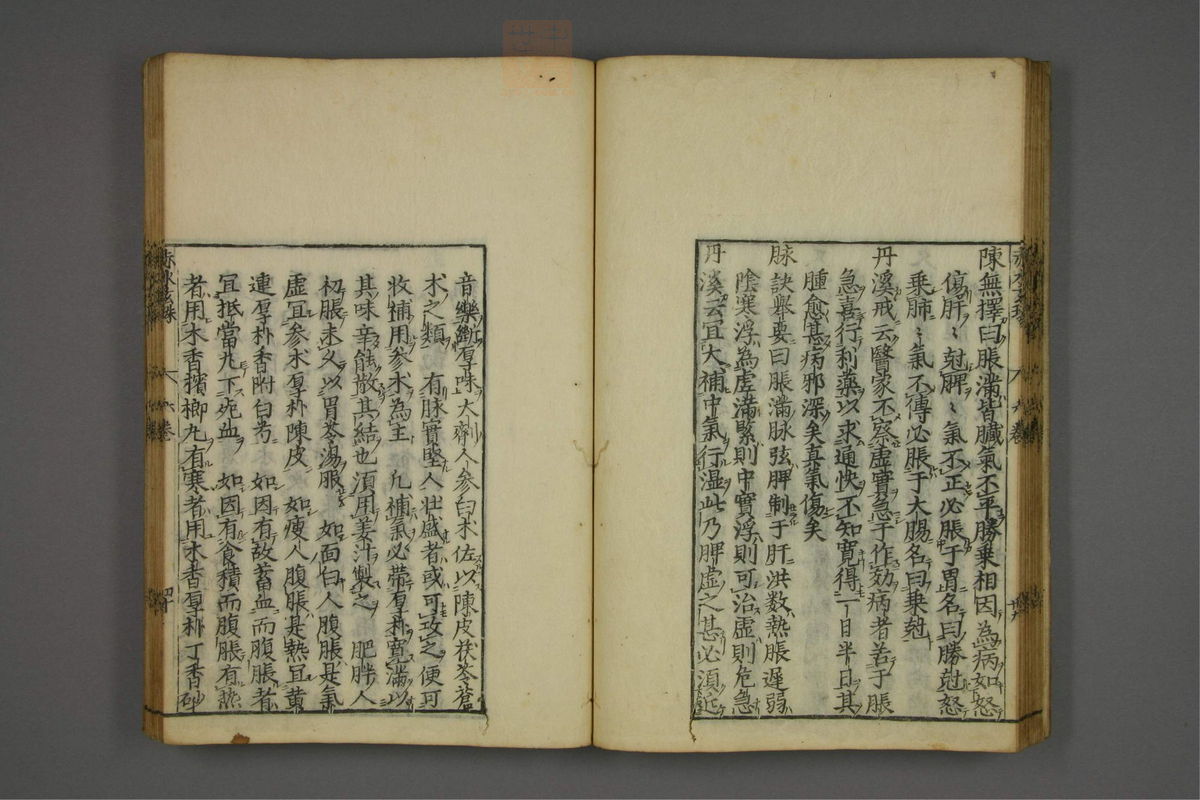 陳無擇曰脹滿皆臟氣不平勝乗相因為病如怒
傷肝〻尅脾〻氣不正必脹于胃名曰勝尅怒
乗肺〻氣不傳必脹于大腸名曰乗尅
丹溪戒云醫家不察虚實急于作効病者苦于脹
急喜行利藥以求通快不知寛得一日半日其
腫愈甚病邪深矣真氣傷矣
脉訣舉要曰脹滿脉弦脾制于肝洪数熱脹遲弱
陰寒浮為虚滿緊則中實浮則可治虚則危急
丹溪云宜大補中氣行湿此乃脾虚之甚必須逺
音樂斷厚味大劑人参白术佐以陳皮茯苓蒼
术之類 有脉實堅人壮盛者或可攻之便可
收補用参术為主 凢補氣必帶厚朴寛滿以
其味辛能散其結也須用姜汁製之 肥胖人
初脹未久以胃苓湯服 如面白人腹脹是氣
虚冝参术厚朴陳皮 如瘦人腹脹是熱冝黄
連厚朴香附白芍 如因有故蓄血而腹脹者
冝抵當丸下死血 如因有食積而腹脹有熱
者用木香檳榔丸有寒者用木香厚朴丁香砂